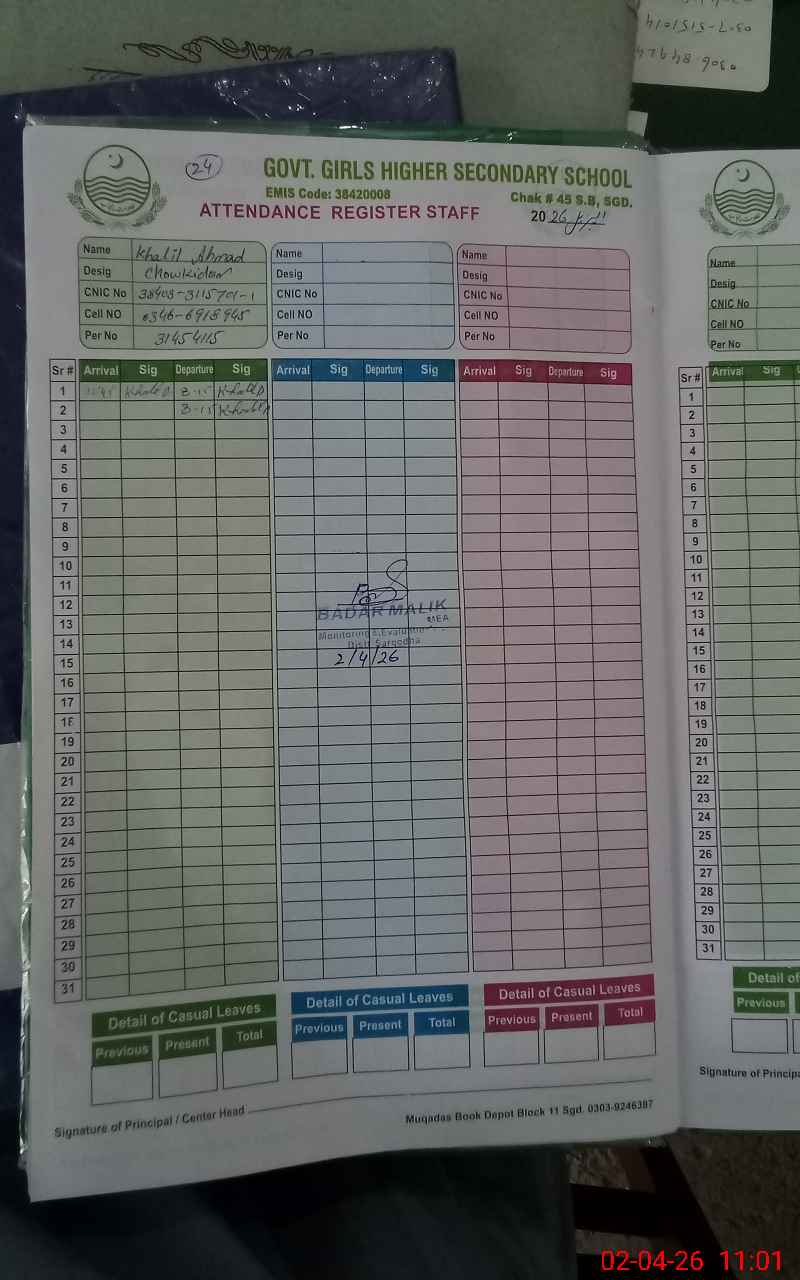 0307-5151014
0306 84924
24
GOVT. GIRLS HIGHER SECONDARY SCHOOL
EMIS Code: 38420008
Chak # 45 S.B, SGD.
ATTENDANCE REGISTER STAFF
2026 اپریل
Name Khalil Ahmad
Desig Chowkidar
CNIC No 38403-3115701-1
Cell NO 0346-6918945
Per No 31454115
Name
Desig
CNIC No
Cell NO
Per No
Name
Desig
CNIC No
Cell NO
Per No
Name
Desig
CNIC No
Cell NO
Per No
Sr # Arrival Sig Departure Sig Arrival Sig Departure Sig Arrival Sig Departure Sig
1 Khalil A 3-15 Khalil A
2 3-15 Khalil A
3
4
5
6
7
8
9
10
11
12
13
14
15
16
17
18
19
20
21
22
23
24
25
26
27
28
29
30
31
BADAR MALIK
MEA
Monitoring & Evaluation
Distt. Sargodha
2/4/26
Detail of Casual Leaves
Previous Present Total
Detail of Casual Leaves
Previous Present Total
Detail of Casual Leaves
Previous Present Total
Signature of Principal / Center Head
Muqadas Book Depot Block 11 Sgd. 0303-9246387
Sr # Arrival Sig
1
2
3
4
5
6
7
8
9
10
11
12
13
14
15
16
17
18
19
20
21
22
23
24
25
26
27
28
29
30
31
Detail of
Previous
Signature of Principa
02-04-26 11:01